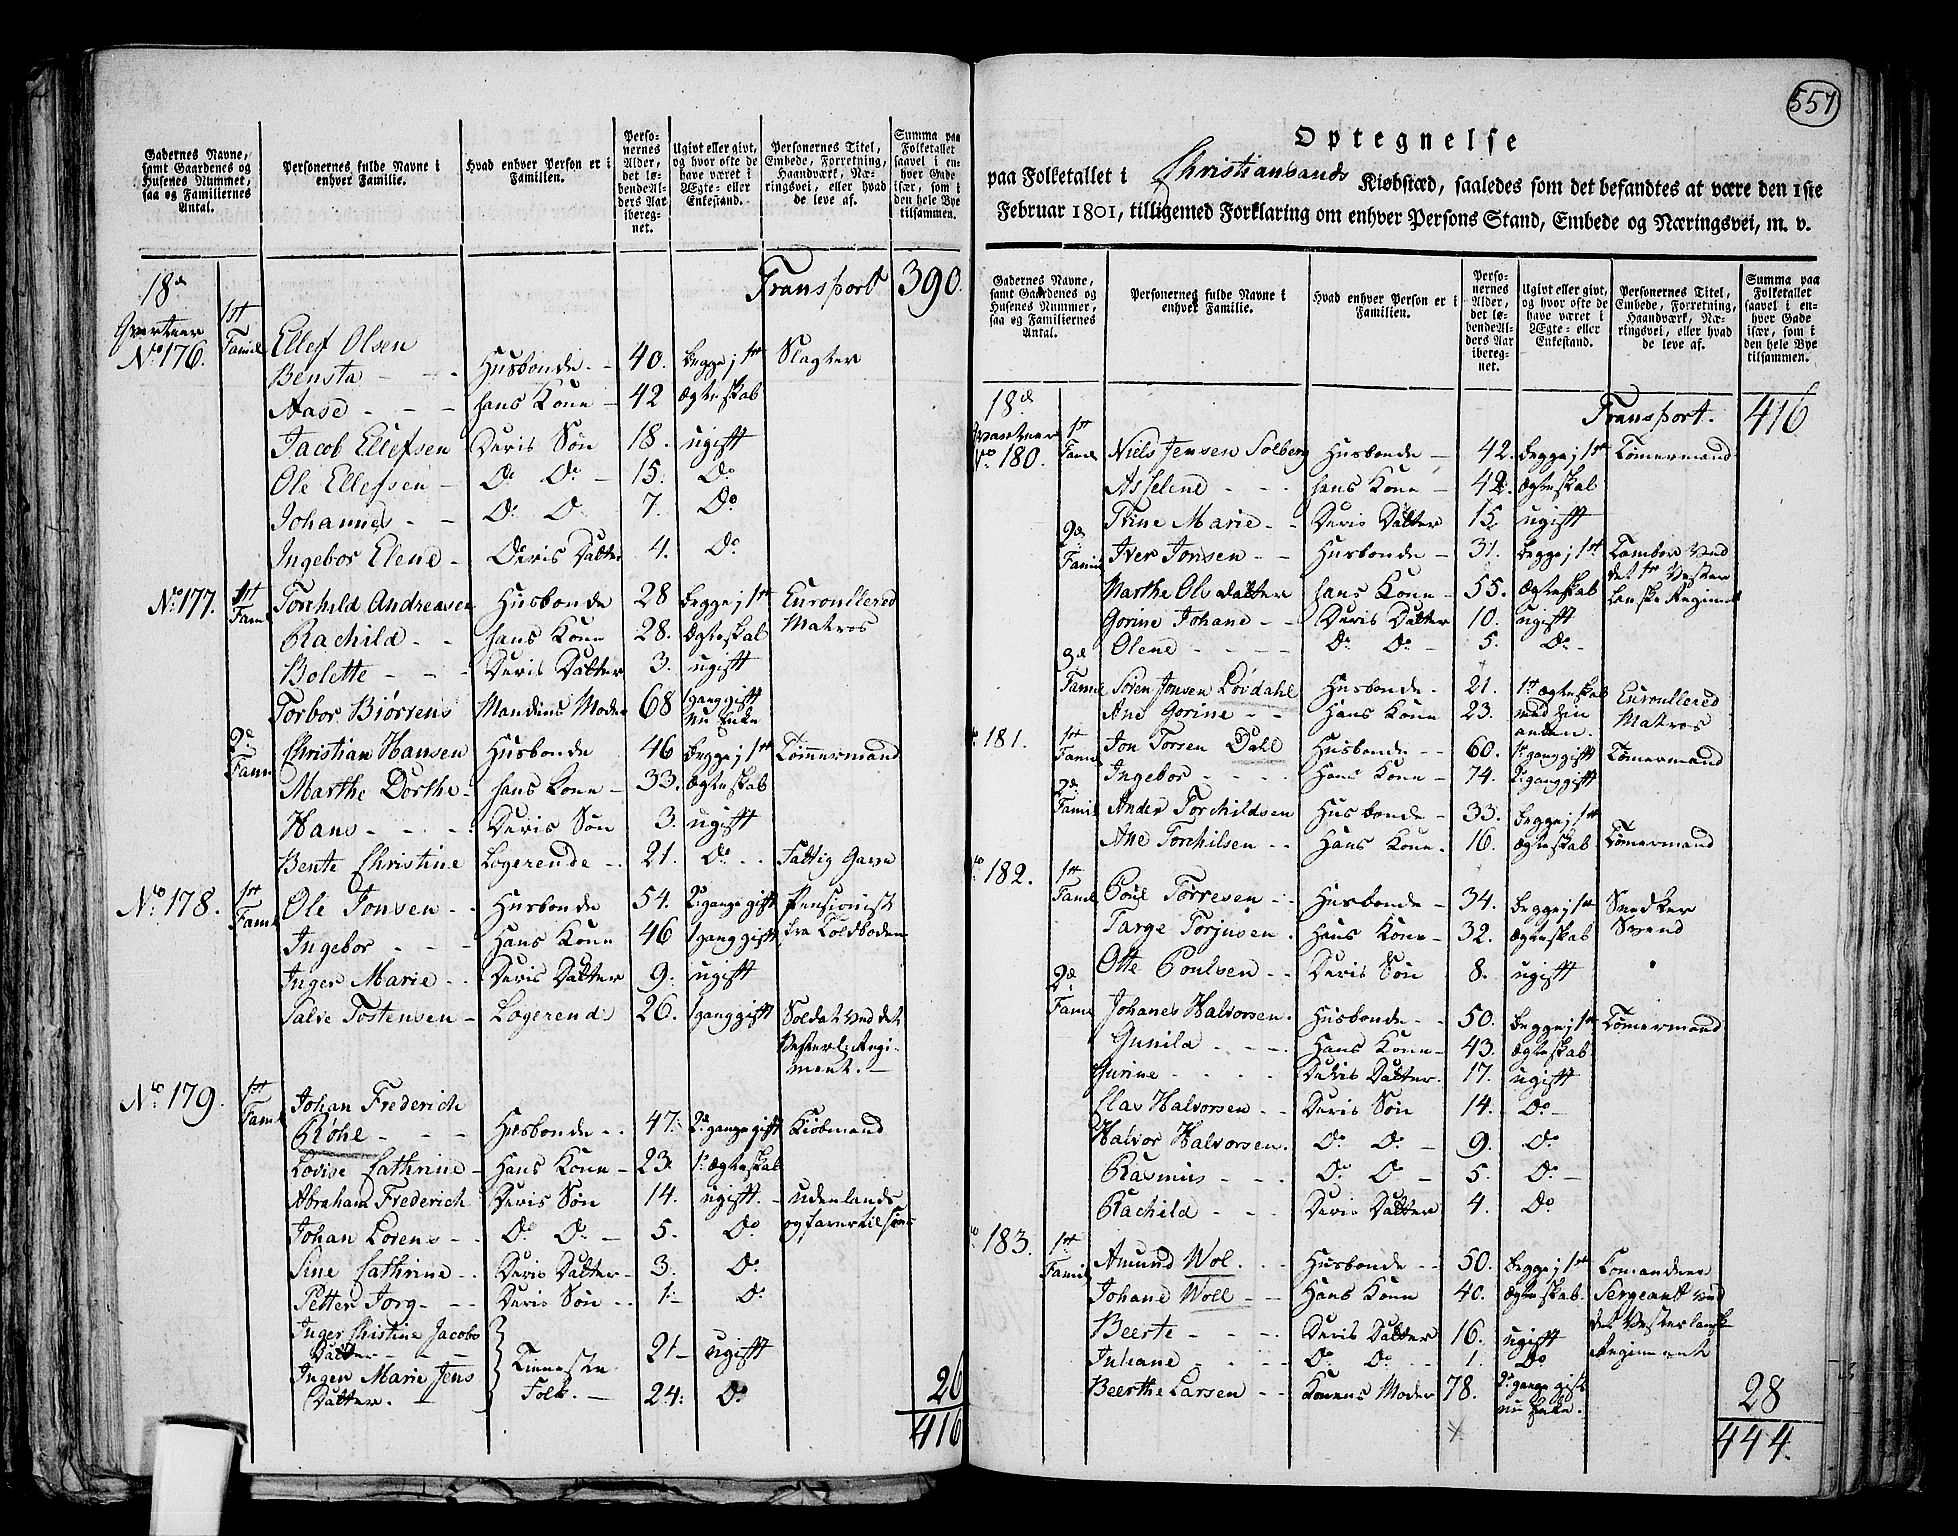 Gadernes Navne, samt Gaardenes og Husenes Nummer, saa og Familiernes Antal.
Personernes fulde Navne i enhver Familie.
Hvad enhver Person er i Familien.
Personernes Alder, det løbende Alders Aar iberegnet.
Ugivt eller givt, og hvor ofte de have været i Ægte- eller Enkestand.
Personernes Titel, Embede, Forretning, Haandværk, Næringsvei, eller hvad de leve af.
Summa paa Folketallet saavel i enhver Gade især, som i den hele Bye tilsammen.
Transport 390
18de Qvarteer No 176. 1st Famil
Ellef Olsen
Bensta - - - Husbonde - 40. begge j 1st Slagter
Aase - - - hans Kone - 42 Ægteskab
Jacob Ellefsen Deris Søn 18. ugift
Ole Ellefsen - Do Do - 15. Do
Johannes - - Do D 7. Do
Ingebor Elene - Deris Datter 4. Do
No 177. 1st Faml Torchild Andreasen Husbonde 28 begge j 1st Enroullered
Rachild - - hans Kone 28. Ægteskab Matros
Bolette - - - Deris Datter 3. ugift
Torbor Biørrens Mandens Moder 68 1 gang gift nu Enke
2de Famil Christian Hansen Husbonde 46 begge j 1st Tømmermand
Marthe Dorthe - hans Kone - 33. Ægteskab
Hans - - - - Deris Søn 3. ugift
Bente Christine Logerende - - 21. Do - - Fattig
No 178. 1st Famil Ole Jonsen - - Husbonde 54. 2 gange gift Pensionist
Ingebor - - - Hans Kone 46 1 gang gift fra Toldboden
Inger Marie - - Deris Datter 9. ugift
Salve Tostensen - Logerende 26. 1 gang gift Soldat ved det
Vesterl: Regi-
ment. -
No 179. 1st Famil Johan Frederich
Røhe - - - Husbonde - - 47. 2de gange gift Kiøbmand
Lovise Cathrine - Hans Kone - 23. 1t Ægteskab
Abraham Frederich Deris Søn 14. ugift. - udenlands
Johan Lorens - - Do Do - 5. Do og farer til søes
Sine Cathrine - - Deris Datter - 3. Do
Petter Jorg - - - Deris Søn - - 1. - Do
Inger Christine Jacobs
Datter - - - Tieneste 21 - ugift
Inger Marie Jens Folk. -
Datter. - - 24. Do
26
416
551
Optegnelse
paa Folketallet i Christiansands Kiøbstæd, saaledes som det befandtes at være den 1ste
Februar 1801, tilligemed Forklaring om enhver Persons Stand, Embede og Næringsvei, m. v.
Gadernes Navne, samt Gaardenes og Husenes Nummer, saa og Familiernes Antal.
Personernes fulde Navne i enhver Familie.
Hvad enhver Person er i Familien.
Personernes Alder, det løbende Alders Aar iberegnet.
Ugivt eller givt, og hvor ofte de have været i Ægte- eller Enkestand.
Personernes Titel, Embede, Forretning, Haandværk, Næringsvei, eller hvad de leve af.
Summa paa Folketallet saavel i enhver Gade især, som i den hele Bye tilsammen.
Transport. 416
18de Qvarteer No 180. 1st Famil Niels Jensen Solberg Husbonde - 42. begge j 1st Tømermand
Asselene - - - hans Kone - 42. Ægteskab
Trine Marie - - Deris Datter 15. ugift
2de Famil Iver Jonsen - - Husbonde - 31. begge j 1st Tambor ved
Marthe Ols datter hans Kone - 55. Ægteskab det 1te Vester
Gorine Johane - - Deris Datter 10. ugift lenske Regiment
Olene - - - - Do Do - 5. Do -
3de Famil Søren Jonsen Løvdahl Husbonde - 21. 1st Ægteskab Enroullered
Ane Gorine - - Hans Kone 23. med hin anden. Matros
181. 1st Famil Jon Torsen Dahl Husbonde - - 60. 1 gang gift Tømermand
Ingebor - - - - Hans Kone - 74. 2 gang gift
2de Famil Ander Torchildsen Husbonde - 33. begge j 1st
Ane Torchilsen - - Hans Kone. 16. Ægteskab Tømermand
182. 1st Famil Poul Tørresen - - Husbonde - 34. begge j 1st Snedker
Targe Torjusen. Hans Kone - 32. Ægteskab Svend
Otte Poulsen - - Deris Søn 8. ugift
2de Famil Johanes Halvorsen. Husbonde - - 50. begge j 1st Tømermand
Gunild - - - Hans Kone - 43. Ægteskab
Gurine - - - - Deris Datter. 17. ugift
Clas Halvorsen - - Deris Søn 14. Do -
Halvor Halvorsen. Do Do - 9. Do
Rasmus - - - Do D - 5. Do -
Rachild - - - Deris Datter 4. Do
183. 1st Famil Amund Wol. - - Husbonde - - 50. begge j 1st Comandeer
Johane Woll - - Hans Kone 40. Ægteskab. Sergeant ved
Beerte - - - - Deris Datter 16. ugift det Vesterlensk
Juliane - - - - Do Do - - 1. Do Regiment
Beerthe Larsen - - Konens Moder 78. 2 gange gift nu Enke.
28
444.